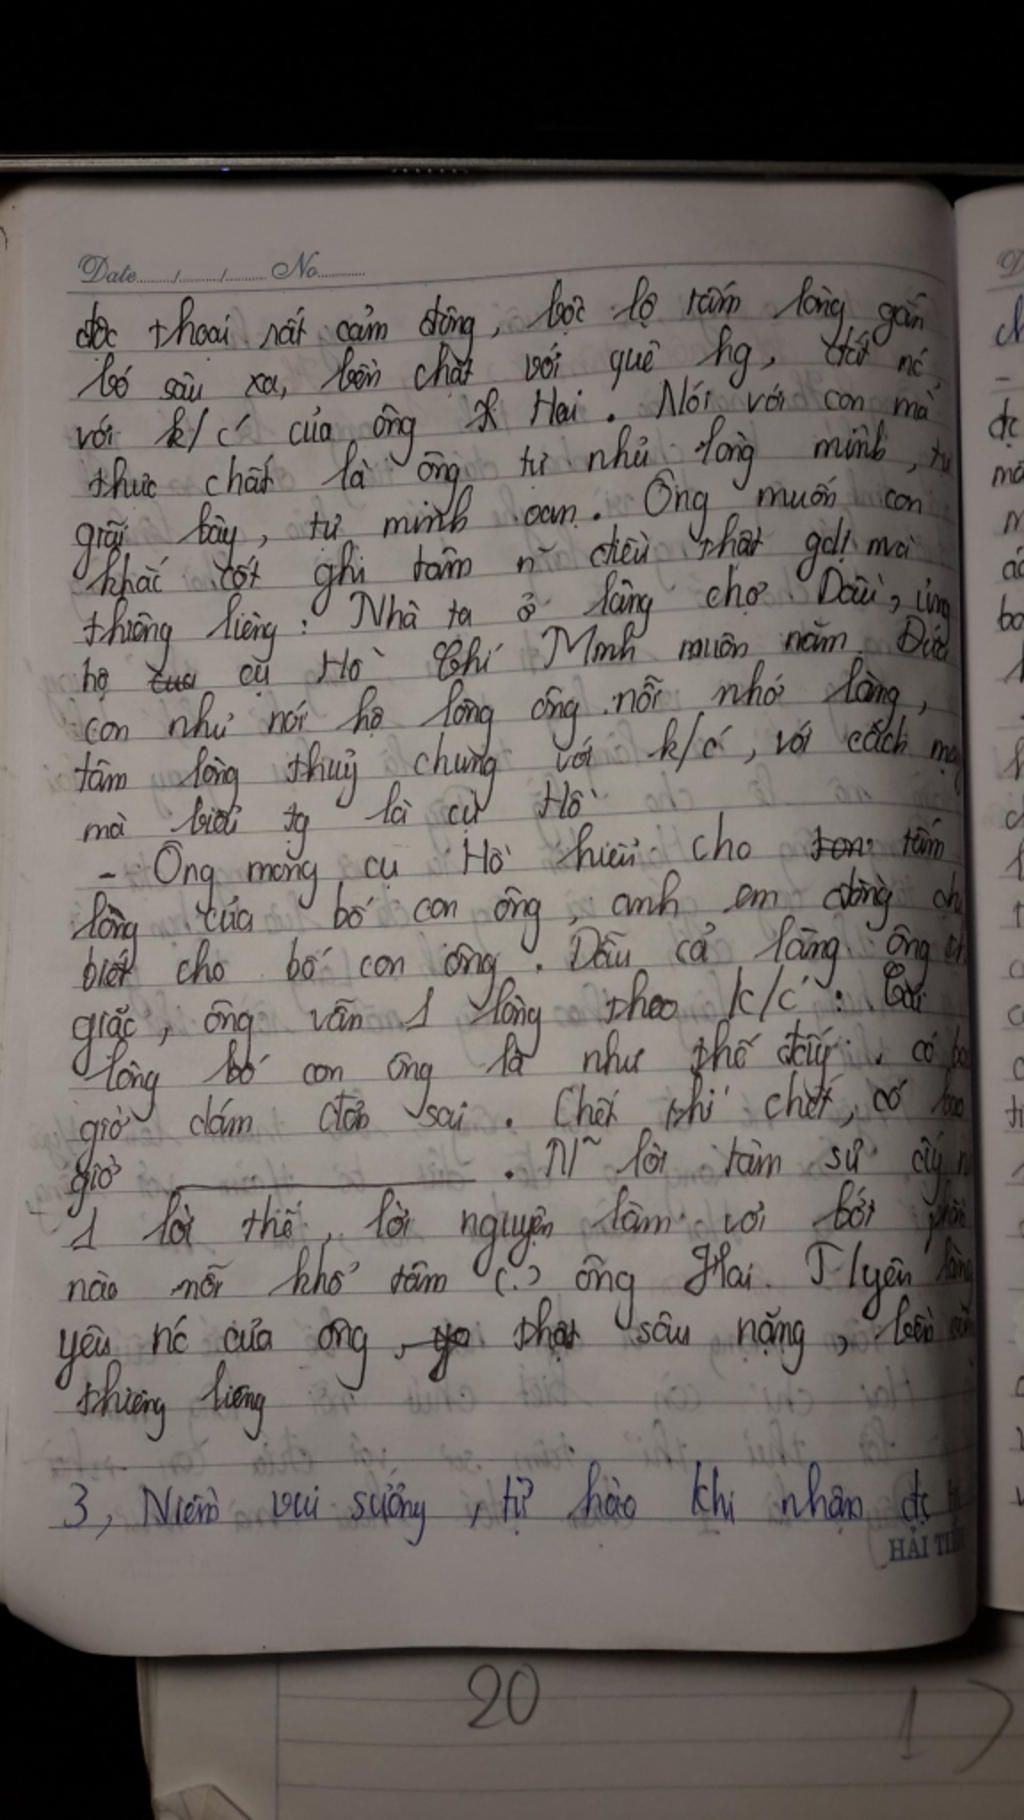 Date....../....../...... No............
độc thoại rất cảm động, bộc lộ tấm lòng gắn
bó sâu xa, bền chặt với quê hg, đất nc,
với k/c của ông Hai. Nói với con mà
thực chất là ông tự nhủ lòng mình, tự
giãi bày, tự minh oan. Ông muốn con
khắc cốt ghi tâm n~ điều thật gdị mà
thiêng liêng: Nhà ta ở làng chợ Dầu, ủng
hộ cụ Hồ Chí Minh muôn năm. Đứa
con như nói hộ lòng ông nỗi nhớ làng,
tấm lòng thuỷ chung với k/c, với cách mạng
mà biểu tg là cụ Hồ
- Ông mong cụ Hồ hiểu cho tấm
lòng của bố con ông, anh em đồng chí
biết cho bố con ông. Dẫu cả làng ông
giặc, ông vẫn 1 lòng theo k/c: Cái
lòng bố con ông là như thế đấy, có bao
giờ dám đơn sai. Chết thì chết, có bao
giờ ____________. N~ lời tâm sự ấy
1 lời thề, lời nguyện làm vơi bớt phần
nào nỗi khổ tâm (.) ông Hai. T/yêu làng
yêu nc của ông thật sâu nặng, bền
thiêng liêng
3, Niềm vui sướng, tự hào khi nhận đc
HẢI TIẾN
20
1)